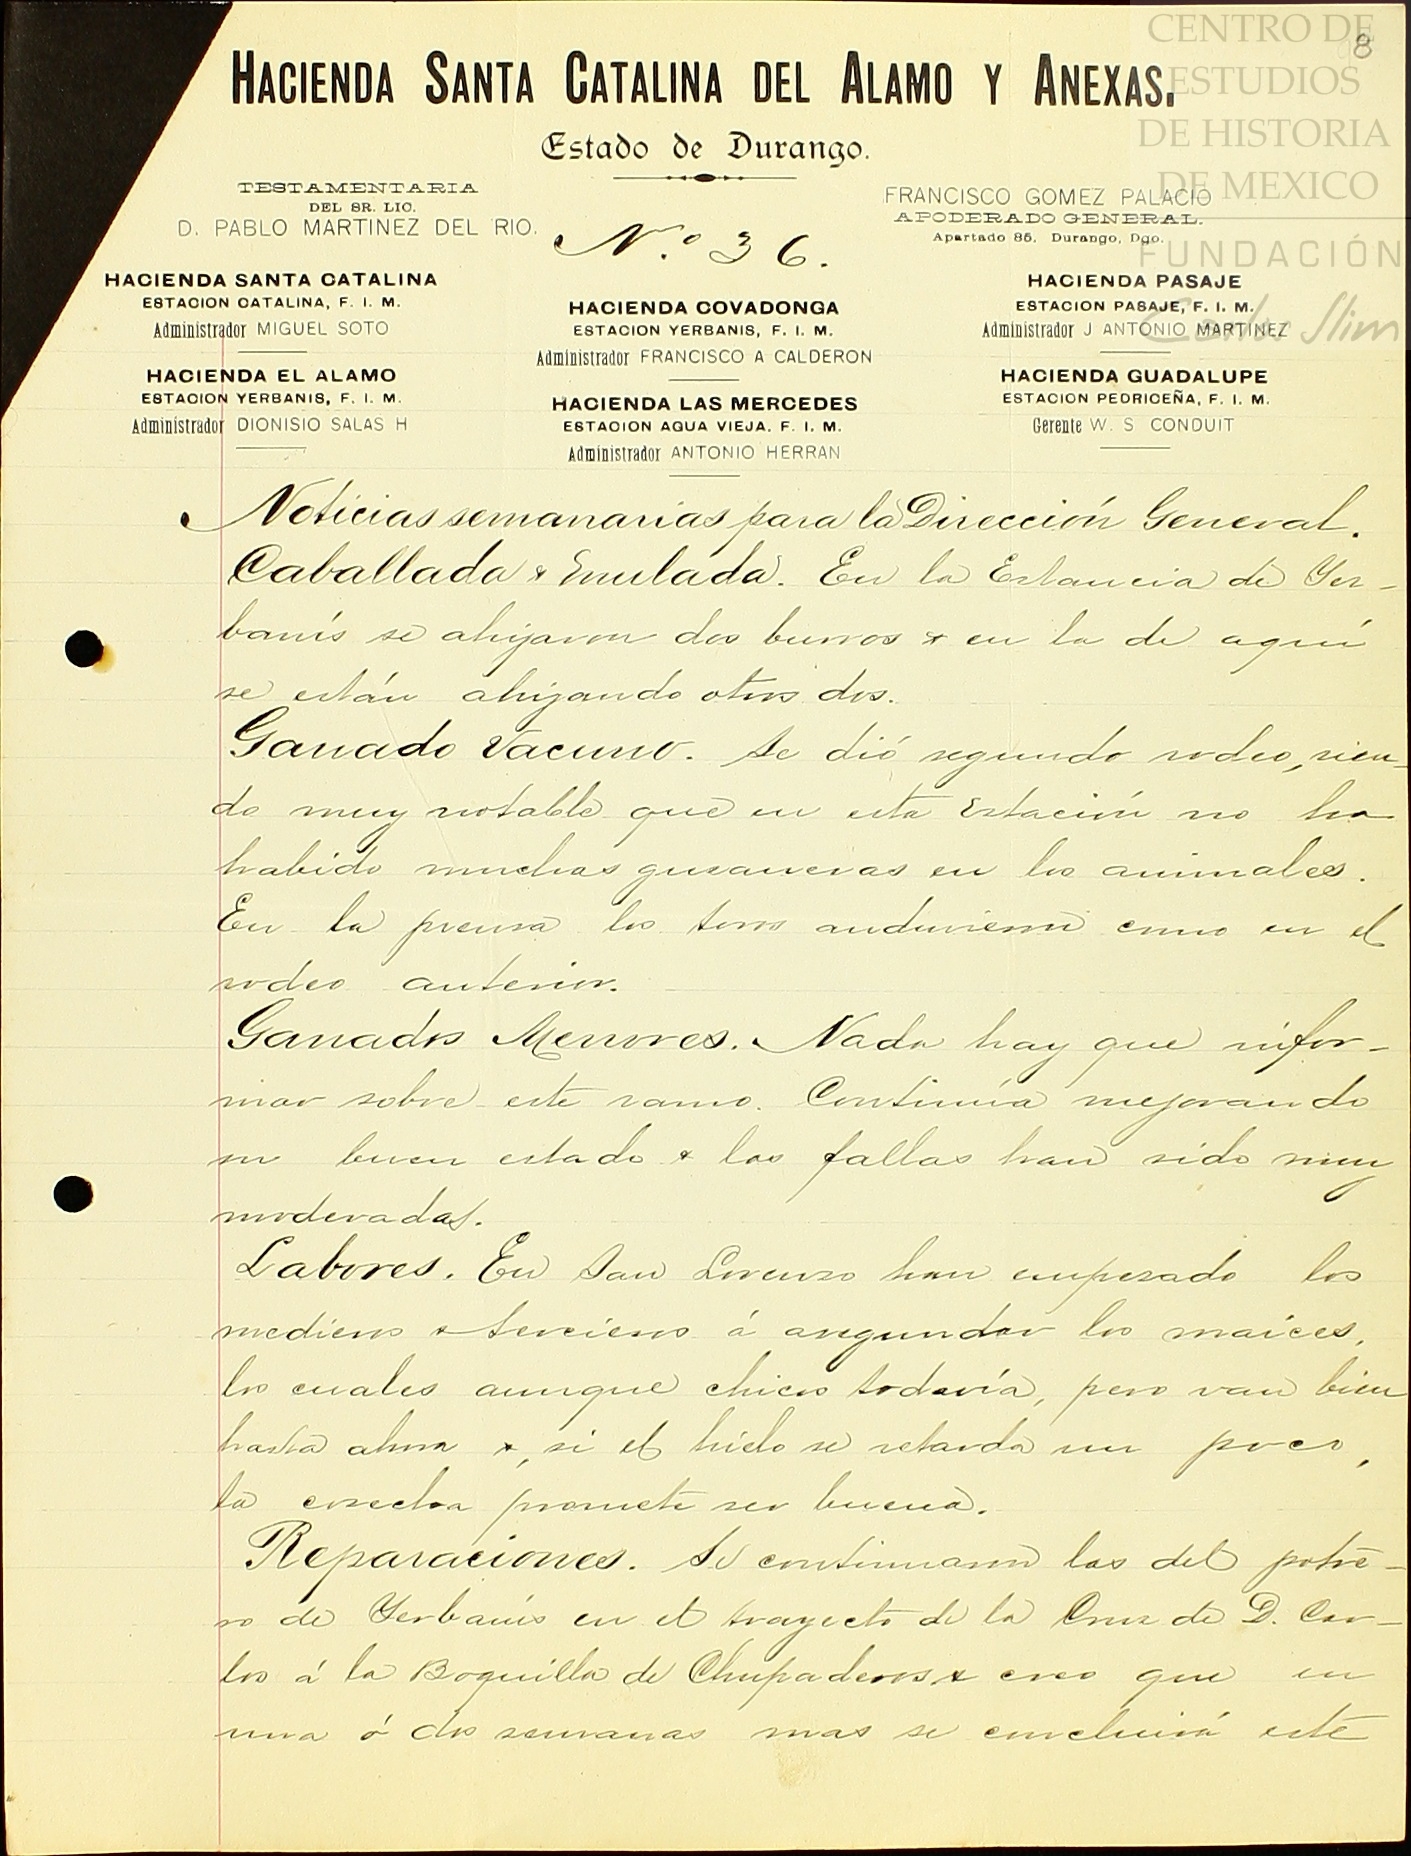 CENTRO DE
ESTUDIOS
DE HISTORIA
DE MEXICO
FUNDACIÓN
Carlos Slim
8
HACIENDA SANTA CATALINA DEL ALAMO Y ANEXAS.
Estado de Durango.
TESTAMENTARIA
DEL SR. LIC.
D. PABLO MARTINEZ DEL RIO.
FRANCISCO GOMEZ PALACIO
APODERADO GENERAL.
Apartado 85. Durango, Dgo.
N.o 36.
HACIENDA SANTA CATALINA
ESTACION CATALINA, F. I. M.
Administrador MIGUEL SOTO
HACIENDA EL ALAMO
ESTACION YERBANIS, F. I. M.
Administrador DIONISIO SALAS H
HACIENDA COVADONGA
ESTACION YERBANIS, F. I. M.
Administrador FRANCISCO A CALDERON
HACIENDA LAS MERCEDES
ESTACION AGUA VIEJA. F. I. M.
Administrador ANTONIO HERRAN
HACIENDA PASAJE
ESTACION PASAJE, F. I. M.
Administrador J ANTONIO MARTINEZ
HACIENDA GUADALUPE
ESTACION PEDRICEÑA, F. I. M.
Gerente W. S CONDUIT
Noticias semanarias para la Dirección General.
Caballada & mulada. En la Estancia de Yer-
banís se ahijaron dos burros & en la de aquí
se están ahijando otros dos.
Ganado Vacuno. Se dió segundo rodeo, sien-
do muy notable que en esta Estación no ha
habido muchas gusaneras en los animales.
En la prensa los toros anduvieron como en el
rodeo anterior.
Ganados Menores. Nada hay que infor-
mar sobre este ramo. Continúa mejorando
su buen estado & las fallas han sido muy
moderadas.
Labores. En San Lorenzo han empezado los
medieros & tercieros á asegundar los maices,
los cuales aunque chicos todavía, pero van bien
hasta ahora &, si el hielo se retarda un poco,
la cosecha promete ser buena.
Reparaciones. Se continuaron las del potre-
ro de Yerbanís en el trayecto de la Cruz de D. Car-
los á la Boquilla de Chupaderos & creo que en
una ó dos semanas mas se concluirá este